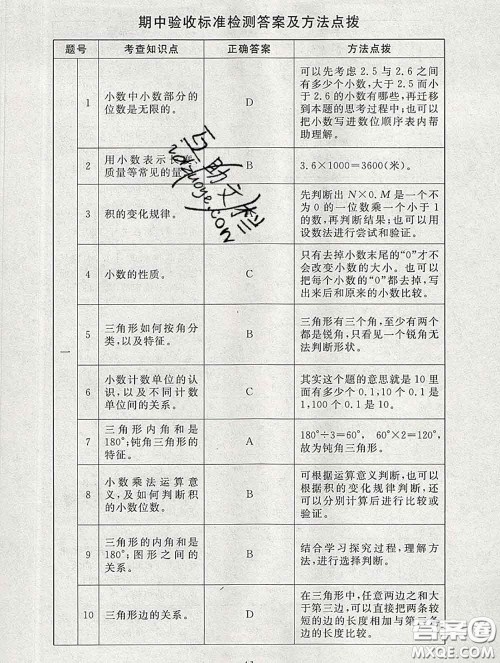 期中验收标准检测答案及方法点拨
题号 考查知识点 正确答案 方法点拨
一
1
小数中小数部分的
位数是无限的。
D
可以先考虑 2.5 与 2.6 之间
有多少个小数，大于 2.5 而小
于 2.6 的小数有哪些，再迁移
到本题的思考过程中；也可以
把小数写进数位顺序表内帮
助理解。
2
用小数表示长度
质量等常见的量
B
3.6×1000＝3600(米)。
3
积的变化规律。
B
先判断出 N×0.M 是一个不
为 0 的一位数乘一个小于 1
的数，再判断结果；也可以用
设数法进行尝试和验证。
4
小数的性质。
C
只有去掉小数末尾的“0”才不
会改变小数的大小。也可以
把每个小数的“0”都去掉，写
出来后和原来的小数比较。
5
三角形如何按角分
类，以及特征。
C
三角形有三个角，至少有两个
都是锐角，只看见一个锐角无
法判断形状。
6
小数计数单位的认
识，以及不同计数
单位间的关系。
C
其实这个题的意思就是 10 里
面有多少个 0.1，10 个 0.1 是
1，100 个 0.1 是 10。
7
三角形内角和是
180°；钝角三角形的
特征。
A
180°÷3＝60° 60°×2＝120°，
故为钝角三角形。
8
小数乘法运算意
义，及如何判断积
的小数位数。
B
可根据运算意义判断，也可以
根据积的变化规律判断，还可
以分别计算后进行比较或
验证。
9
三角形的内角和是
180°；图形之间的
关系。
B
结合学习探究过程，理解方
法，进行选择判断。
10
三角形边的关系。
D
在三角形中，任意两边之和大
于第三边，可以直接把两条较
短的边的长度相加与第三条
边的长度比较。
互助文库
答案圈
MXQE.COM